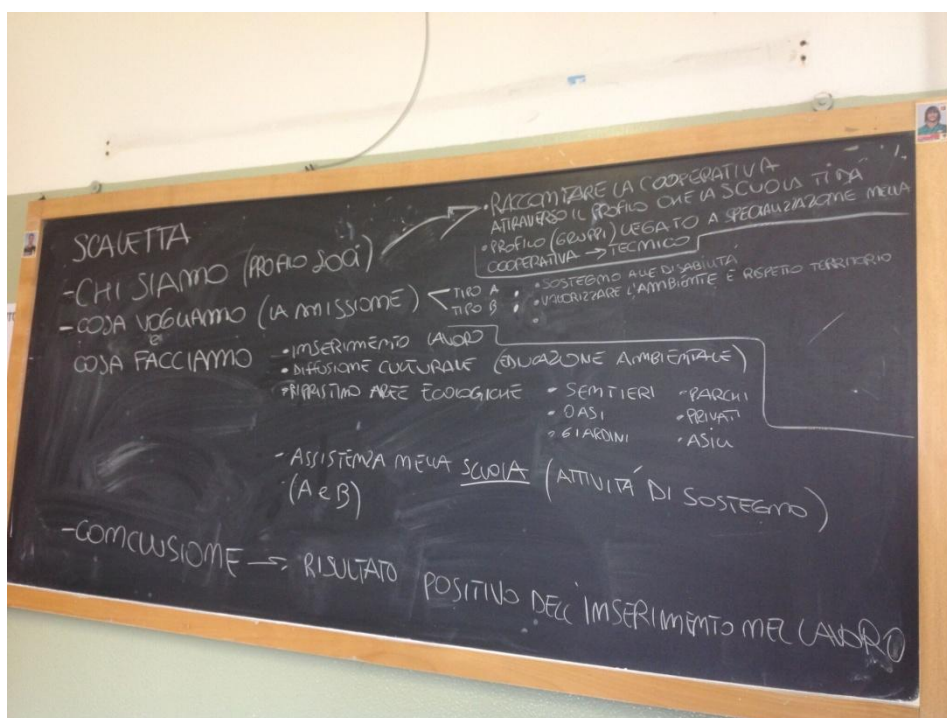 SCALETTA
- CHI SIAMO (PROFILO SOCI)
· RACCONTARE LA COOPERATIVA
ATTRAVERSO IL PROFILO CHE LA SCUOLA TI DÀ
· PROFILO (GRUPPI) LEGATO A SPECIALIZZAZIONE NELLA
COOPERATIVA → TECNICO
- COSA VOGLIAMO (LA MISSIONE)
TIPO A : · SOSTEGNO ALLE DISABILITÀ
TIPO B : · VALORIZZARE L'AMBIENTE E RISPETTO TERRITORIO
COSA FACCIAMO
· INSERIMENTO LAVORO
· DIFFUSIONE CULTURALE (EDUCAZIONE AMBIENTALE)
· RIPRISTINO AREE ECOLOGICHE
· SENTIERI · PARCHI
· OASI · PRIVATI
· GIARDINI · ASILI
- ASSISTENZA NELLA SCUOLA (ATTIVITÀ DI SOSTEGNO)
(A e B)
- CONCLUSIONE → RISULTATO POSITIVO DELL'INSERIMENTO NEL LAVORO